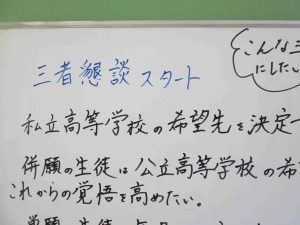 三者懇談 スタート
こんな三
にしたい
私立高等学校の希望先を決定
併願の生徒は公立高等学校の希
これからの覚悟を高めたい。